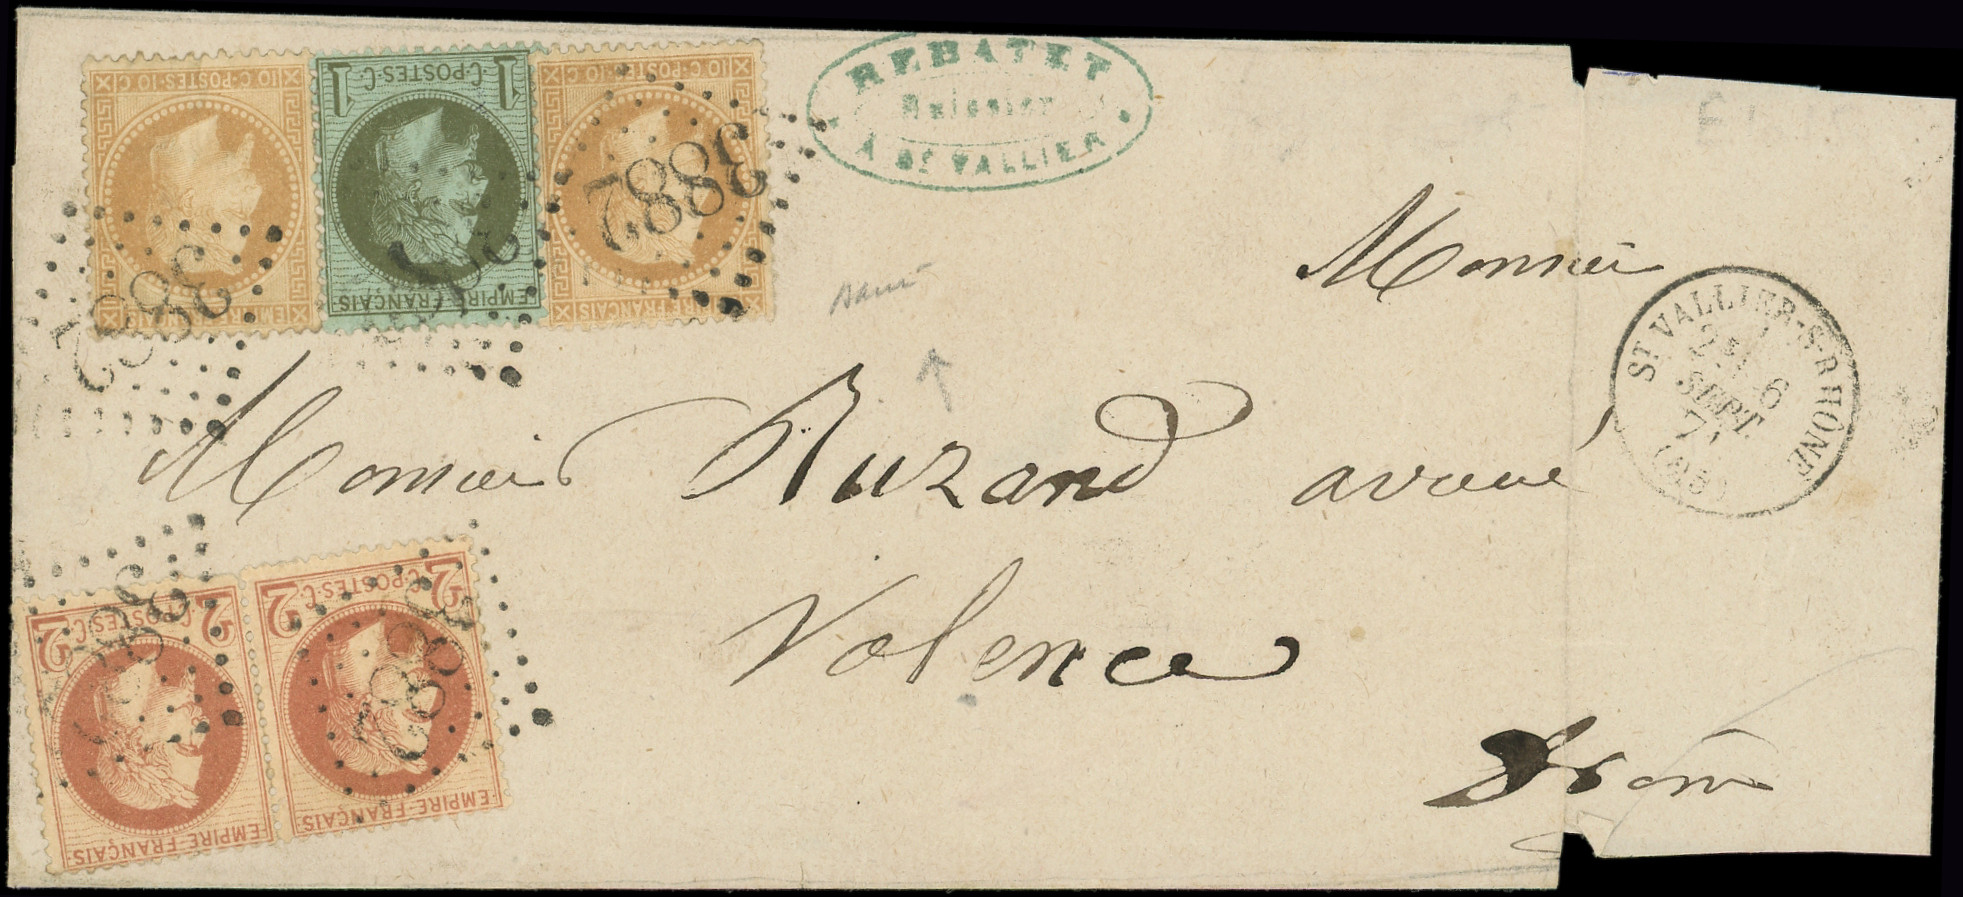 10 C·POSTES·10 C
EMPIRE FRANÇAIS
3882
1 C·POSTES·C 1
EMPIRE FRANÇAIS
10 C·POSTES·10 C
EMPIRE FRANÇAIS
3882
REBATET
Huissier
A ST VALLIER
Monsieu
ST VALLIER-S-RHÔNE
6
SEPT.
71
(25)
Monsieur Ruzand avoué
Valence
Drôme
2 C·POSTES·C 2
EMPIRE·FRANÇAIS
3882
2 C·POSTES·C 2
EMPIRE·FRANÇAIS
3882